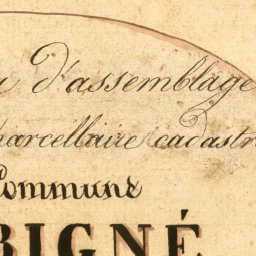 d'assemblage
parcellaire cadastr
Commune
BIGNÉ